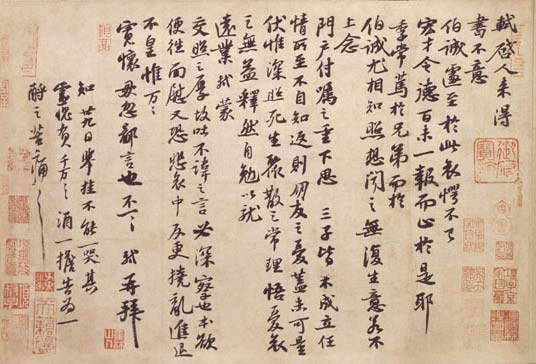 軾啓人來得
書不意
伯誠遽至於此哀愕不已
宏才令德百未一報而止於是耶
季常篤於兄弟而於
伯誠尤相知照想聞之無復生意若不
上念
門戶付囑之重下思三子皆未成立任
情所至不自知返則朋友之憂蓋未可量
伏惟深照死生聚散之常理悟憂哀
之無益釋然自勉以就
遠業軾蒙
交照之厚故吐不諱之言必深察也本欲
便往面慰又恐悲哀中反更撓亂進退
不皇惟万万
寬懷毋忽鄙言也不一一軾再拜
知廿九日舉挂不能一哭其
靈愧負千万千万酒一擔告為一
酹之苦痛苦痛